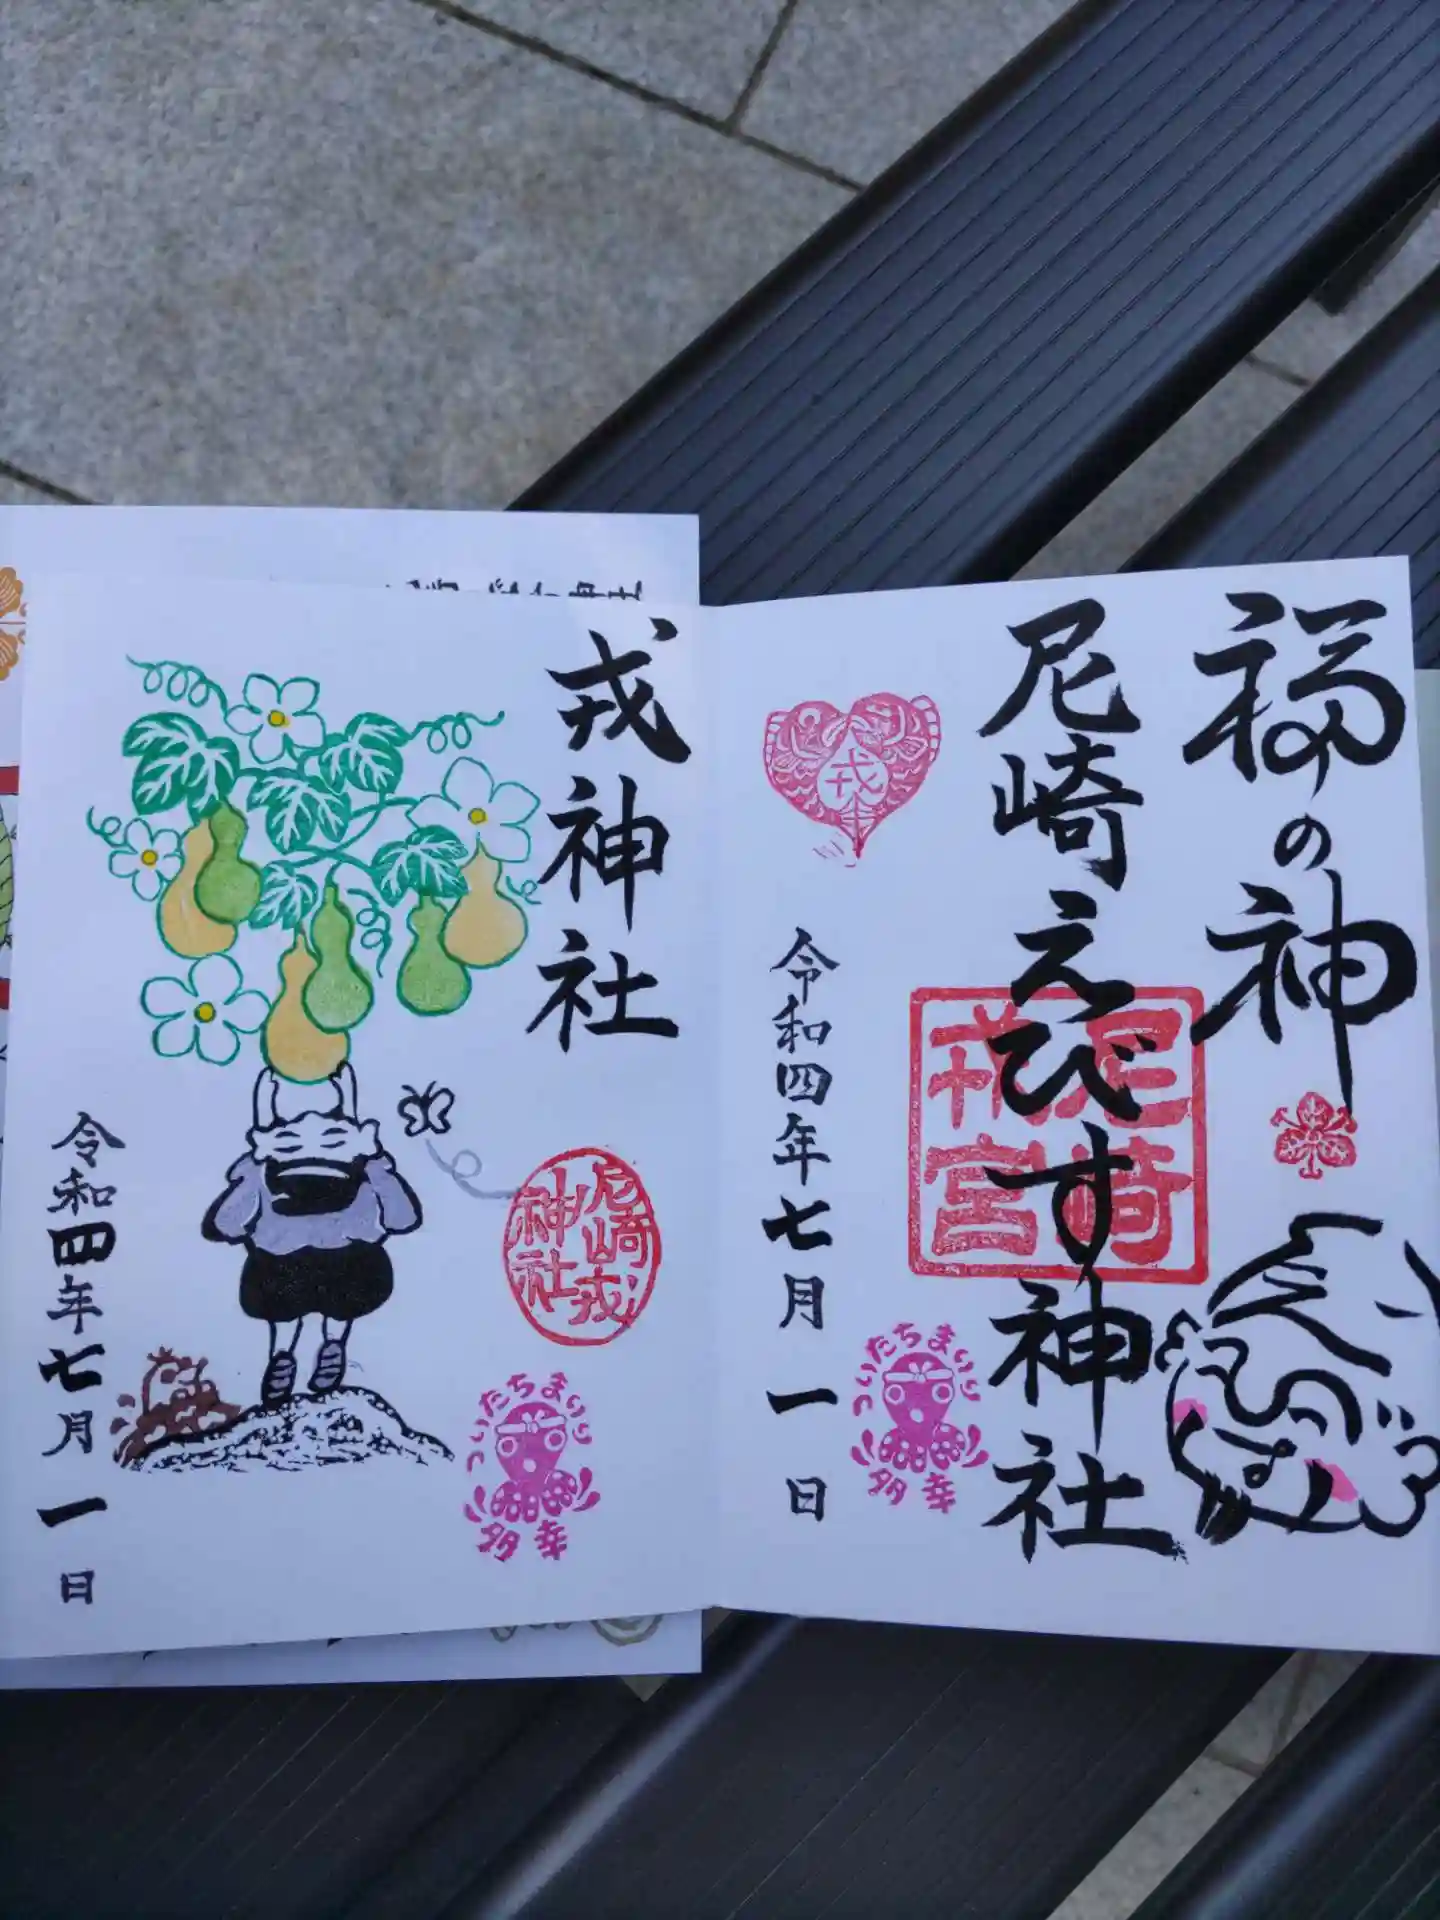 福の神
尼崎えびす神社
尼崎
戎宮
戎
令和四年七月一日
ついたちまいり
多幸
戎神社
尼崎戎
神社
令和四年七月一日
ついたちまいり
多幸